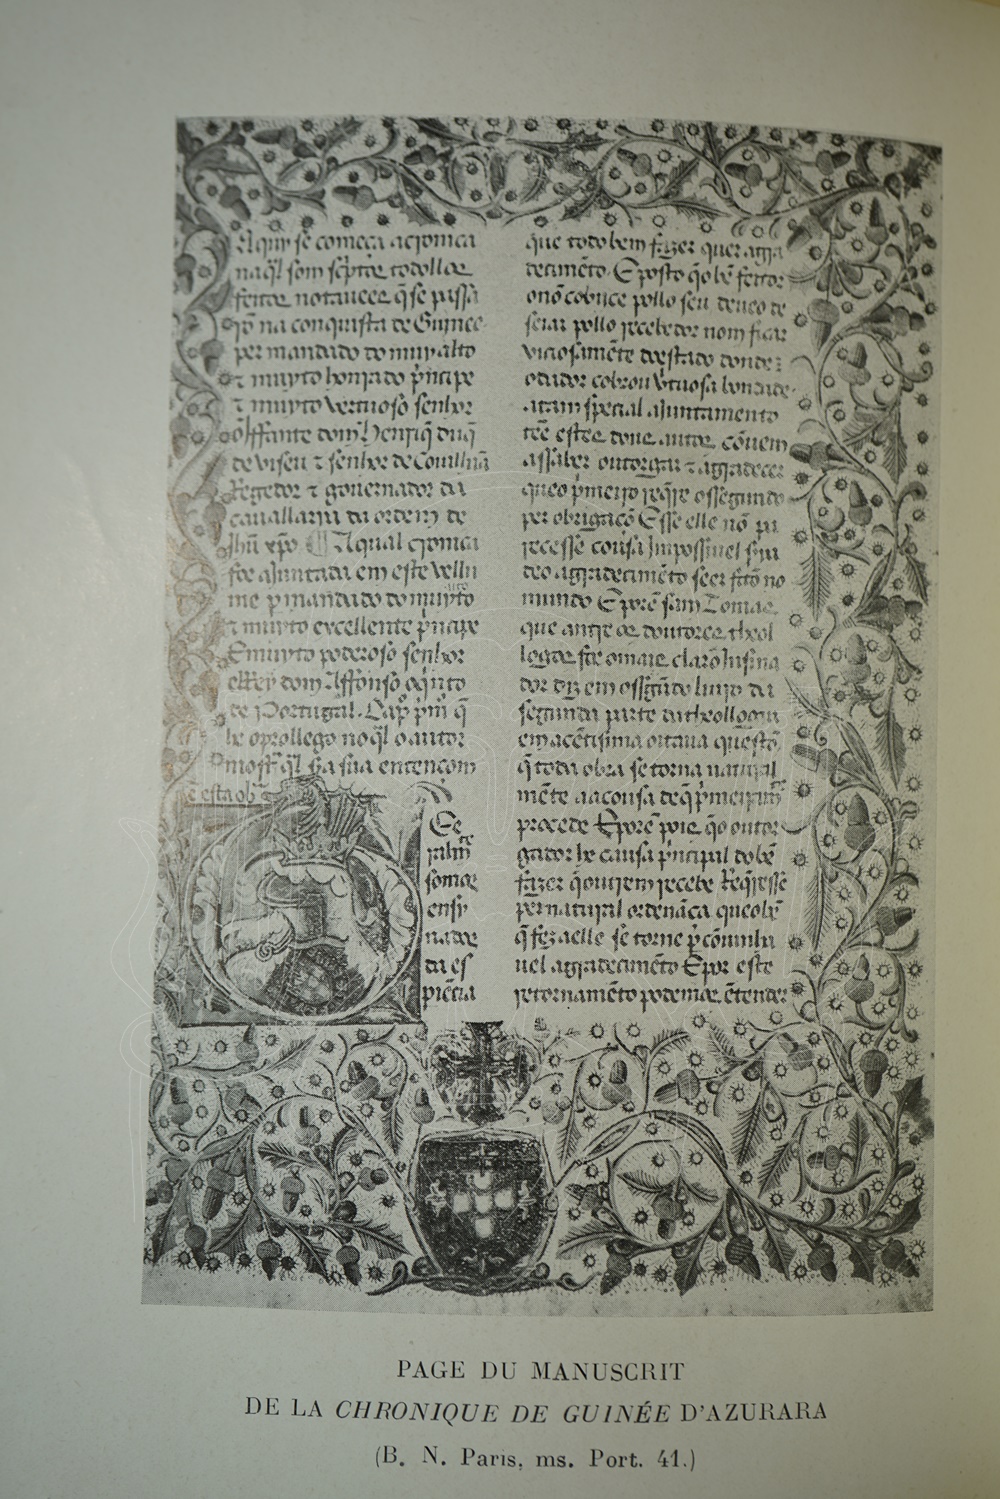 Aquy se começa acronica
naq̃l som scp̃tos todollos
feitos notauees q̃ se passã
rõ na conquista de Guinee
per mandado do muy alto
τ muyto honrado p̃ncipe
τ muyto vertuoso senhor
oIffante dom Henriq̃ duq̃
de viseu τ senhor de Couilhaã
Regedor τ gouernador da
cauallaria da ordem de
Jhũ xp̃o ¶ Aqual cronica
foe aJuntada em este vellu
me p̃ mandado do muyto
τ muyto excellente p̃ncipe
Emuyto poderoso senhor
elRey dom Affonso oq̃nto
de Portugal. Cap̃ p̃mº q̃
he oprollego noq̃l o autor
mostᵃ q̃l sᵃa sua entençom
ẽ esta obᵃ
Ge
ralmẽ
somos
ensy
nados
da es
piẽcia
que todo bem fazer quer agra
decimẽto. E posto q̃ o bẽ feitor
onõ cobiice pollo seu deueo de
seiar pollo recebedor nom ficar
viciosamẽte doestado donde:
odador cobrou vtuosa bondade.
atam special aJuntamento
tẽe estes dous autos cõuem
assaber outorgar τ agradecer
queo p̃meiro req̃re ossegundo
per obrigaçõ E sse elle nõ pa
recesse cousa Impossiuel sᵃia
deo agradecimẽto seer fcto no
mundo E porẽ sam Tomas
que antre os doutores theol
logos foe omais claro Insina
dor diz em ossegũdo liuro da
segunda parte da theollogia
em acẽtisima oitaua questõ
q̃ toda obra se torna naturral
mẽte aacousa de q̃ p̃meiramẽ
procede E porẽ pois q̃ o outor
gador he causa p̃ncipal do bẽ
fazer q̃ outrem recebe Req̃resse
per natural ordenãça que o bẽ
q̃ fez aelle se torne p̃ cõuinha
uel agradecimẽto E por este
retornamẽto podemos ẽtender
PAGE DU MANUSCRIT
DE LA CHRONIQUE DE GUINÉE D'AZURARA
(B. N. Paris, ms. Port. 41.)